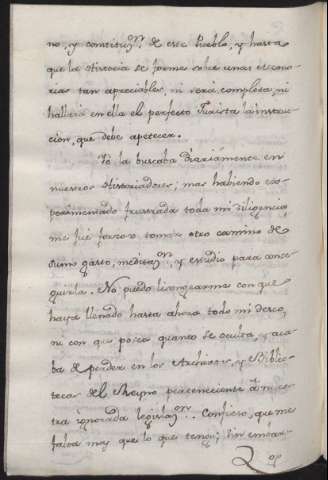 no, y constituz.n de este Pueblo, y hasta
que la Historia se forme sobre unas
tan apreciables, ni será completa, ni
hallará en ella el perfecto Jurista la instruc-
cion, que debe apetecer.
Yo la buscaba diariamente en
nuestros Historiadores; mas habiendo ex-
perimentado frustrada toda mi diligencia,
me fué forzoso tomar otro camino de
sumo gasto, meditaz.n, y estudio para conse-
guirla. No puedo lisongearme con que
haya llenado hasta ahora todo mi deseo,
ni con que posea quanto se oculta, y aca-
ba de perder en los Archivos, y Biblio-
tecas del Reyno perteneciente á nues-
tra ignorada legislaz.on. Confieso, que me
falta mas que lo que tengo; sin embar-